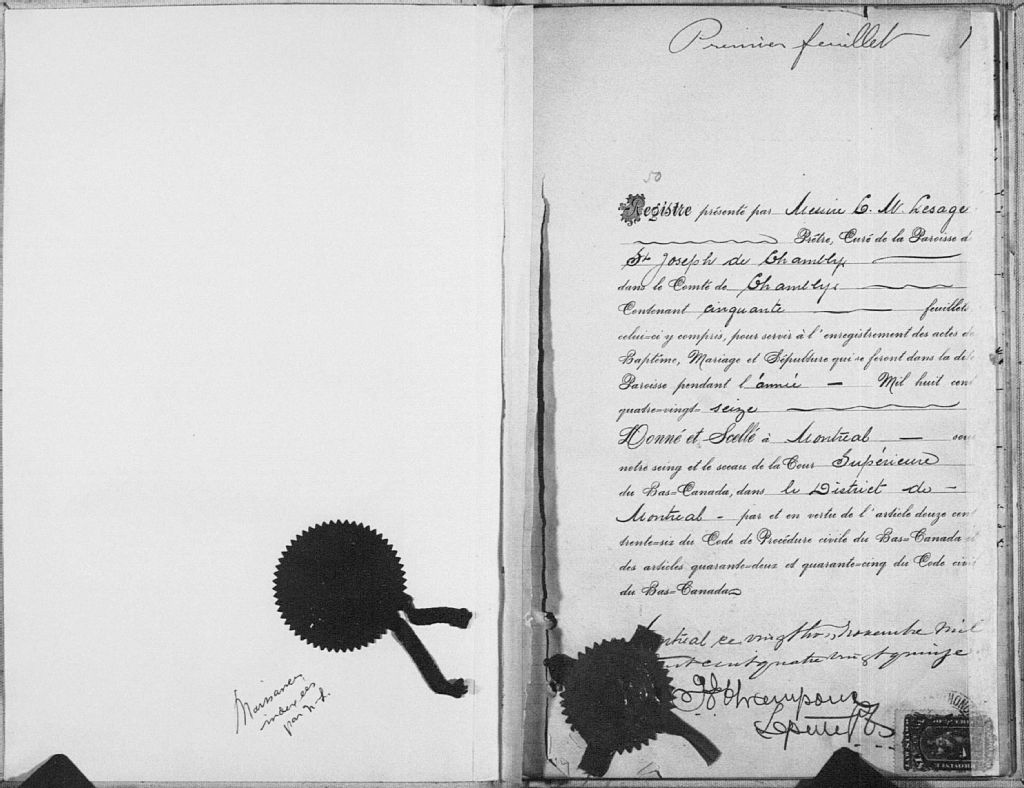 Naissances
indexées
par
Premier feuillet 1
50
Registre présenté par Messire L. M. Lesage
Prêtre, Curé de la Paroisse d
St Joseph de Chambly
dans le Comté de Chambly
Contenant cinquante feuillets
celui=ci y compris, pour servir à l'enregistrement des actes de
Baptême, Mariage et Sépulture qui se feront dans la dite
Paroisse pendant l'année — Mil huit cent
quatre=vingt= seize
Donné et Scellé à Montréal — sous
notre seing et le sceau de la Cour Supérieure
du Bas=Canada, dans le District de —
Montréal - par et en vertu de l'article douze cent
trente=six du Code de Procédure civile du Bas=Canada et
des articles quarante=deux et quarante=cinq du Code civil
du Bas=Canada
Montréal ce vingt trois novembre mil
huit cent quatre vingt quinze